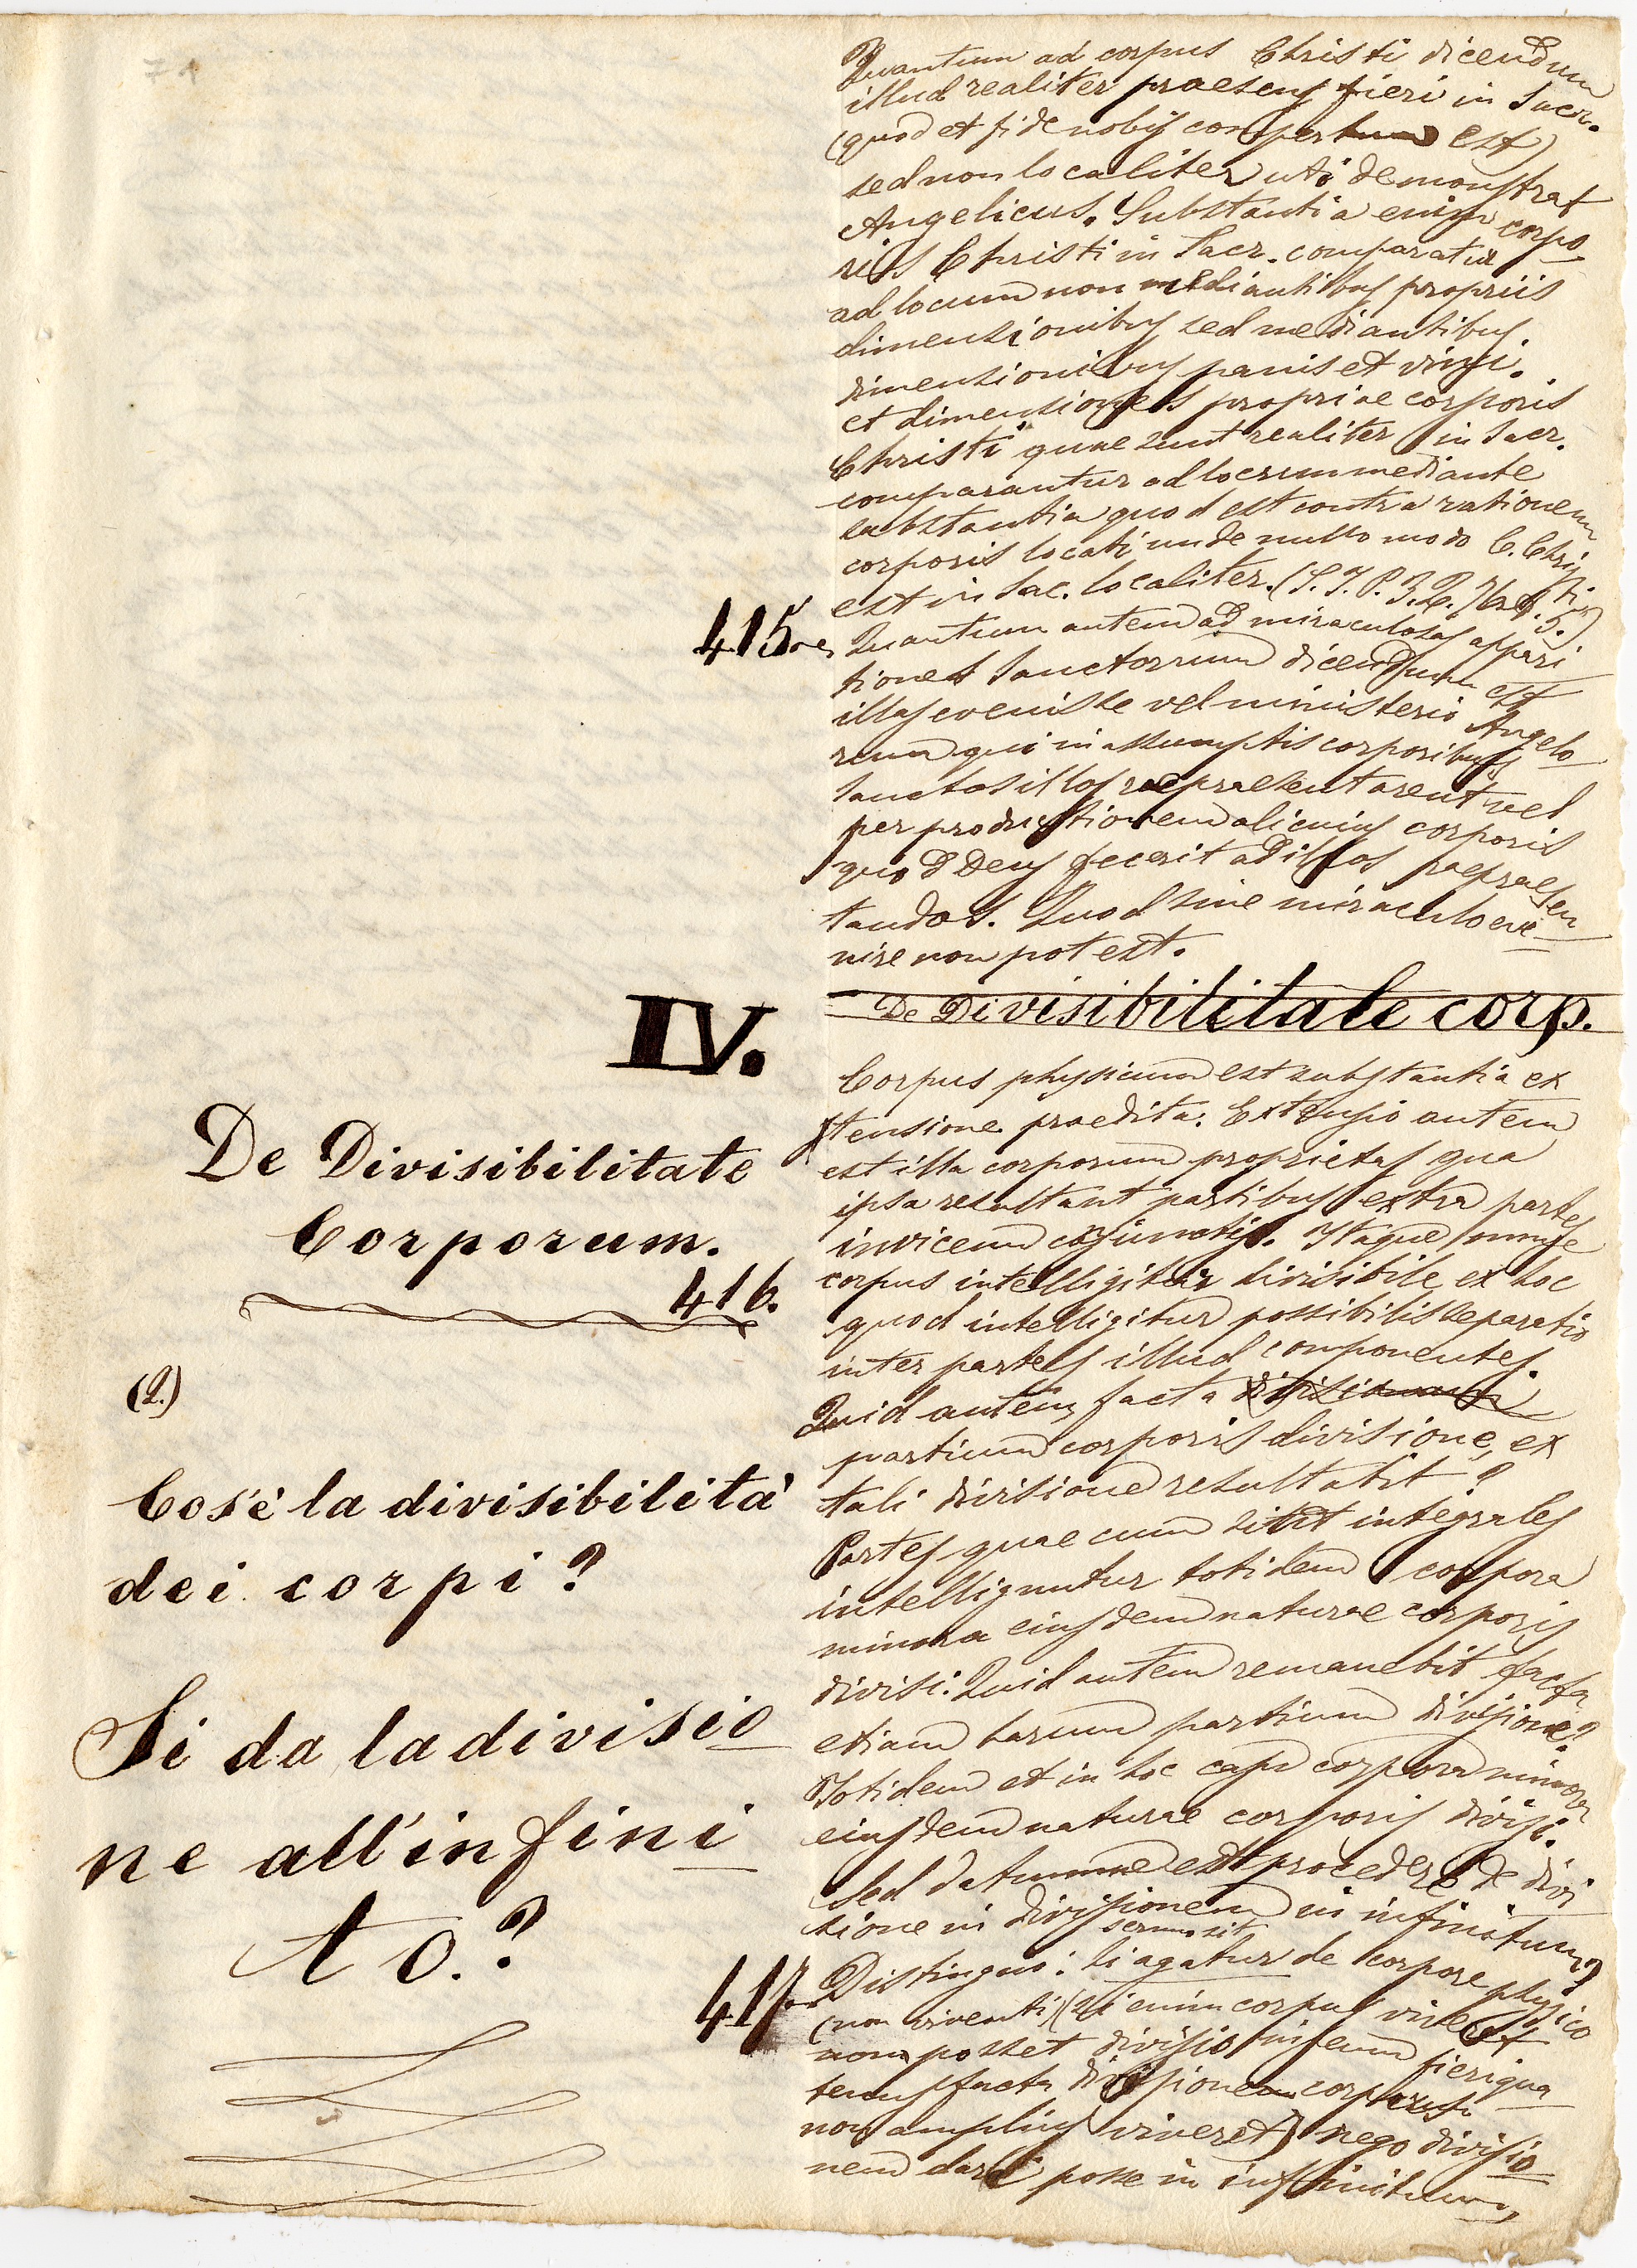 Quantum ad corpus Christi dicendum
illud realiter praesens fieri in Sacr.
(quod et fide nobis compertum est)
sed non localiter uti demonstrat
Angelicus. Substantia enim corpo
ris Christi in Sacr. comparatur
ad locum non mediantibus propriis
dimensionibus sed mediantibus
dimensionibus panis et vini.
et dimensiones propriae corporis
Christi quae sunt realiter in Sacr.
comparantur ad locum mediante
substantia quod est contra rationem
corporis locati unde nullo modo C. Christi
est in Sac. localiter. (S. T. P. 3. Q. 76 a. 5.)
415
Quantum autem ad miraculosas appari
tiones Sanctorum dicendum est
illas evenisse vel ministerio Angelo
rum qui in assumptis corporibus
Sanctos illos repraesentarent vel
per productionem alicuius corporis
quod Deus fecerit ad illos repraesen
tandos. Quod sine miraculo eve
nire non potest.
IV.
De Divisibilitate corp.
De Divisibilitate
Corporum.
416.
Corpus physicum est substantia ex
tensione praedita. Extensio autem
est illa corporum proprietas qua
ipsa resultant partibus extra partes
invicem conjunctis. Itaque omne
corpus intelligitur divisibile ex hoc
quod intelligitur possibilis separatio
inter partes illud componentes.
(2.)
Cos'è la divisibilità
dei corpi?
Quid autem facta
partium corporis divisione, ex
tali divisione resultabit?
Partes quae cum sint integrales
intelliguntur totidem corpora
minora eiusdem naturae corporis
divisi. Quid autem remanebit facta
etiam harum partium divisione?
Totidem et in hoc casu corpora minora
eiusdem naturae corporis divisi.
Si da la divisio
ne all'infini
to.?
Sed datumne est procedere de divi
sione in divisionem in infinitum?
417
sermo sit
Distinguo: si agatur de corpore physico
(non viventi) (si enim corpus viveret
non posset divisio in eum fieri qua
tenus facta divisione corpus
non amplius viveret) nego divisio
nem dari posse in infinitum,